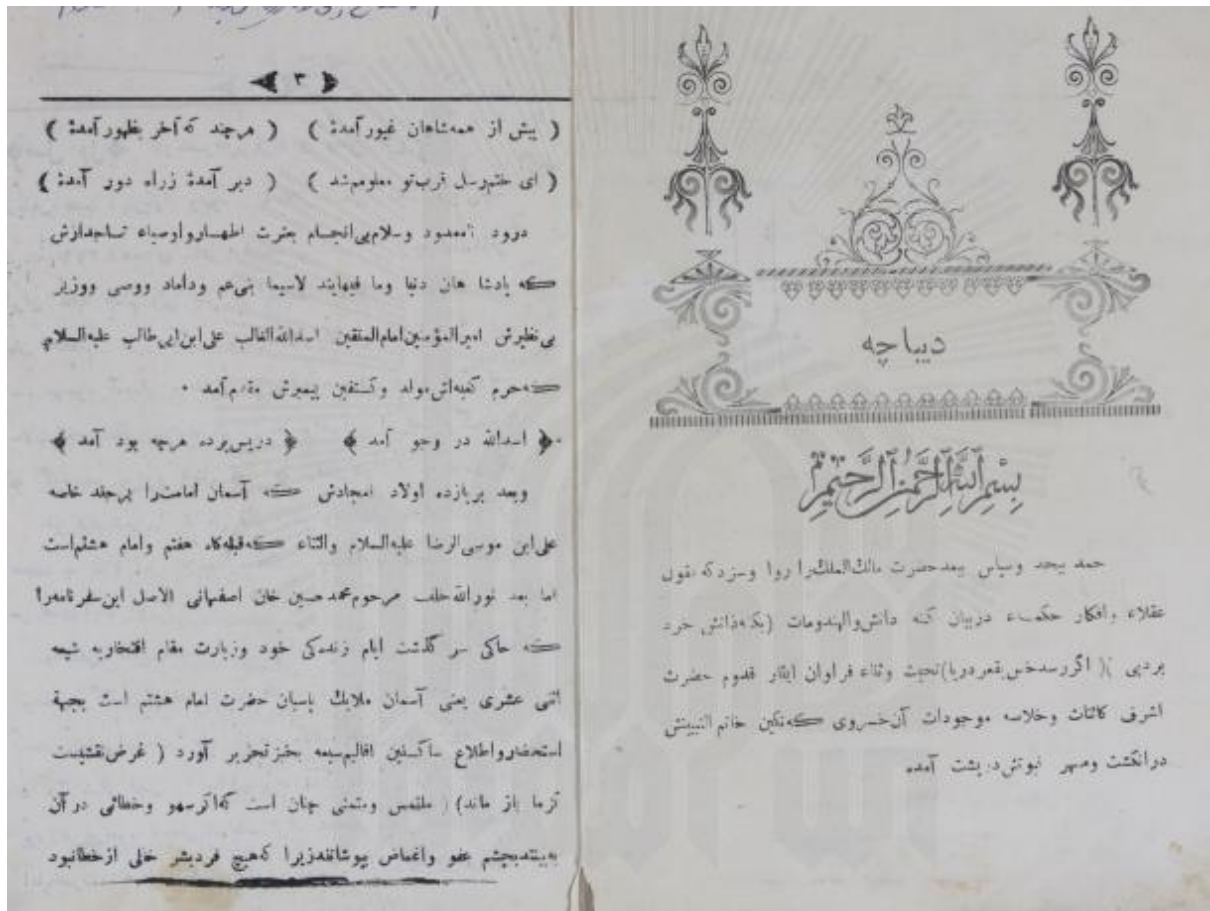 دیباچه
بِسْمِ اللَّهِ الرَّحْمٰنِ الرَّحِیْمِ
حمد بیحد وسپاس بیعد حضرت مالك‌الملك‌را روا وسزد که عقول
عقلاء وافکار حکماء دربیان کنه دانش (بکنه‌ذاتش خرد
بردپی )( اگررسدخس بقعردریا)تحیت وثناء فراوان ایثار قدوم حضرت
اشرف کائنات وخلاصه موجودات آن‌خسروی که‌نگین خاتم النبیینش
درانگشت ومهر نبوتش‌درپشت آمده
۳
( پیش از همه‌شاهان غیور آمدهٔ ) ( هرچند که آخر بظهور آمدهٔ )
( ای ختم‌رسل قرب‌تو معلومم‌شد ) ( دیر آمدهٔ زراه دور آمدهٔ )
درود نامعدود وسلام‌بی‌انجام بعترت اطهارواوصیاء تاجدارش
که پادشا هان دنیا وما فیهایند لاسیما بنی‌عم وداماد ووصی ووزیر
بی‌نظیرش امیرالمؤمنین‌امام‌المتقین اسدالله‌الغالب علی‌ابن‌ابی‌طالب علیه‌السلام
که‌حرم کعبه‌اش‌مولد وکتفین پیمبرش مقام‌آمد ۰
اسدالله در وجو آمد درپس‌پرده هرچه بود آمد
وبعد بریازده اولاد امجادش که آسمان امامت‌را برجند خاصه
علی‌ابن موسی‌الرضا علیه‌السلام والثناء که‌قبله‌گاه هفتم وامام هشتم‌است
اما بعد نورالله‌خلف مرحوم‌محمدحسین خان اصفهانی الاصل این‌سفرنامه‌را
که حاکی سر گذشت ایام زندگی خود وزیارت مقام افتخاریه شیعه
اثنی عشری یعنی آسمان ملایك پاسبان حضرت امام هشتم است بجهة
استحضارواطلاع ساکنین اقالیم‌سبعه بحیزتحریر آورد ( غرض‌نقشیست
کزما باز ماند) ( ملتمس ومتمنی چنان است که‌اگرسهو وخطائی درآن
به‌بینندبچشم عفو واغماض بپوشانندزیرا که‌هیچ فردبشر خالی ازخطانبود